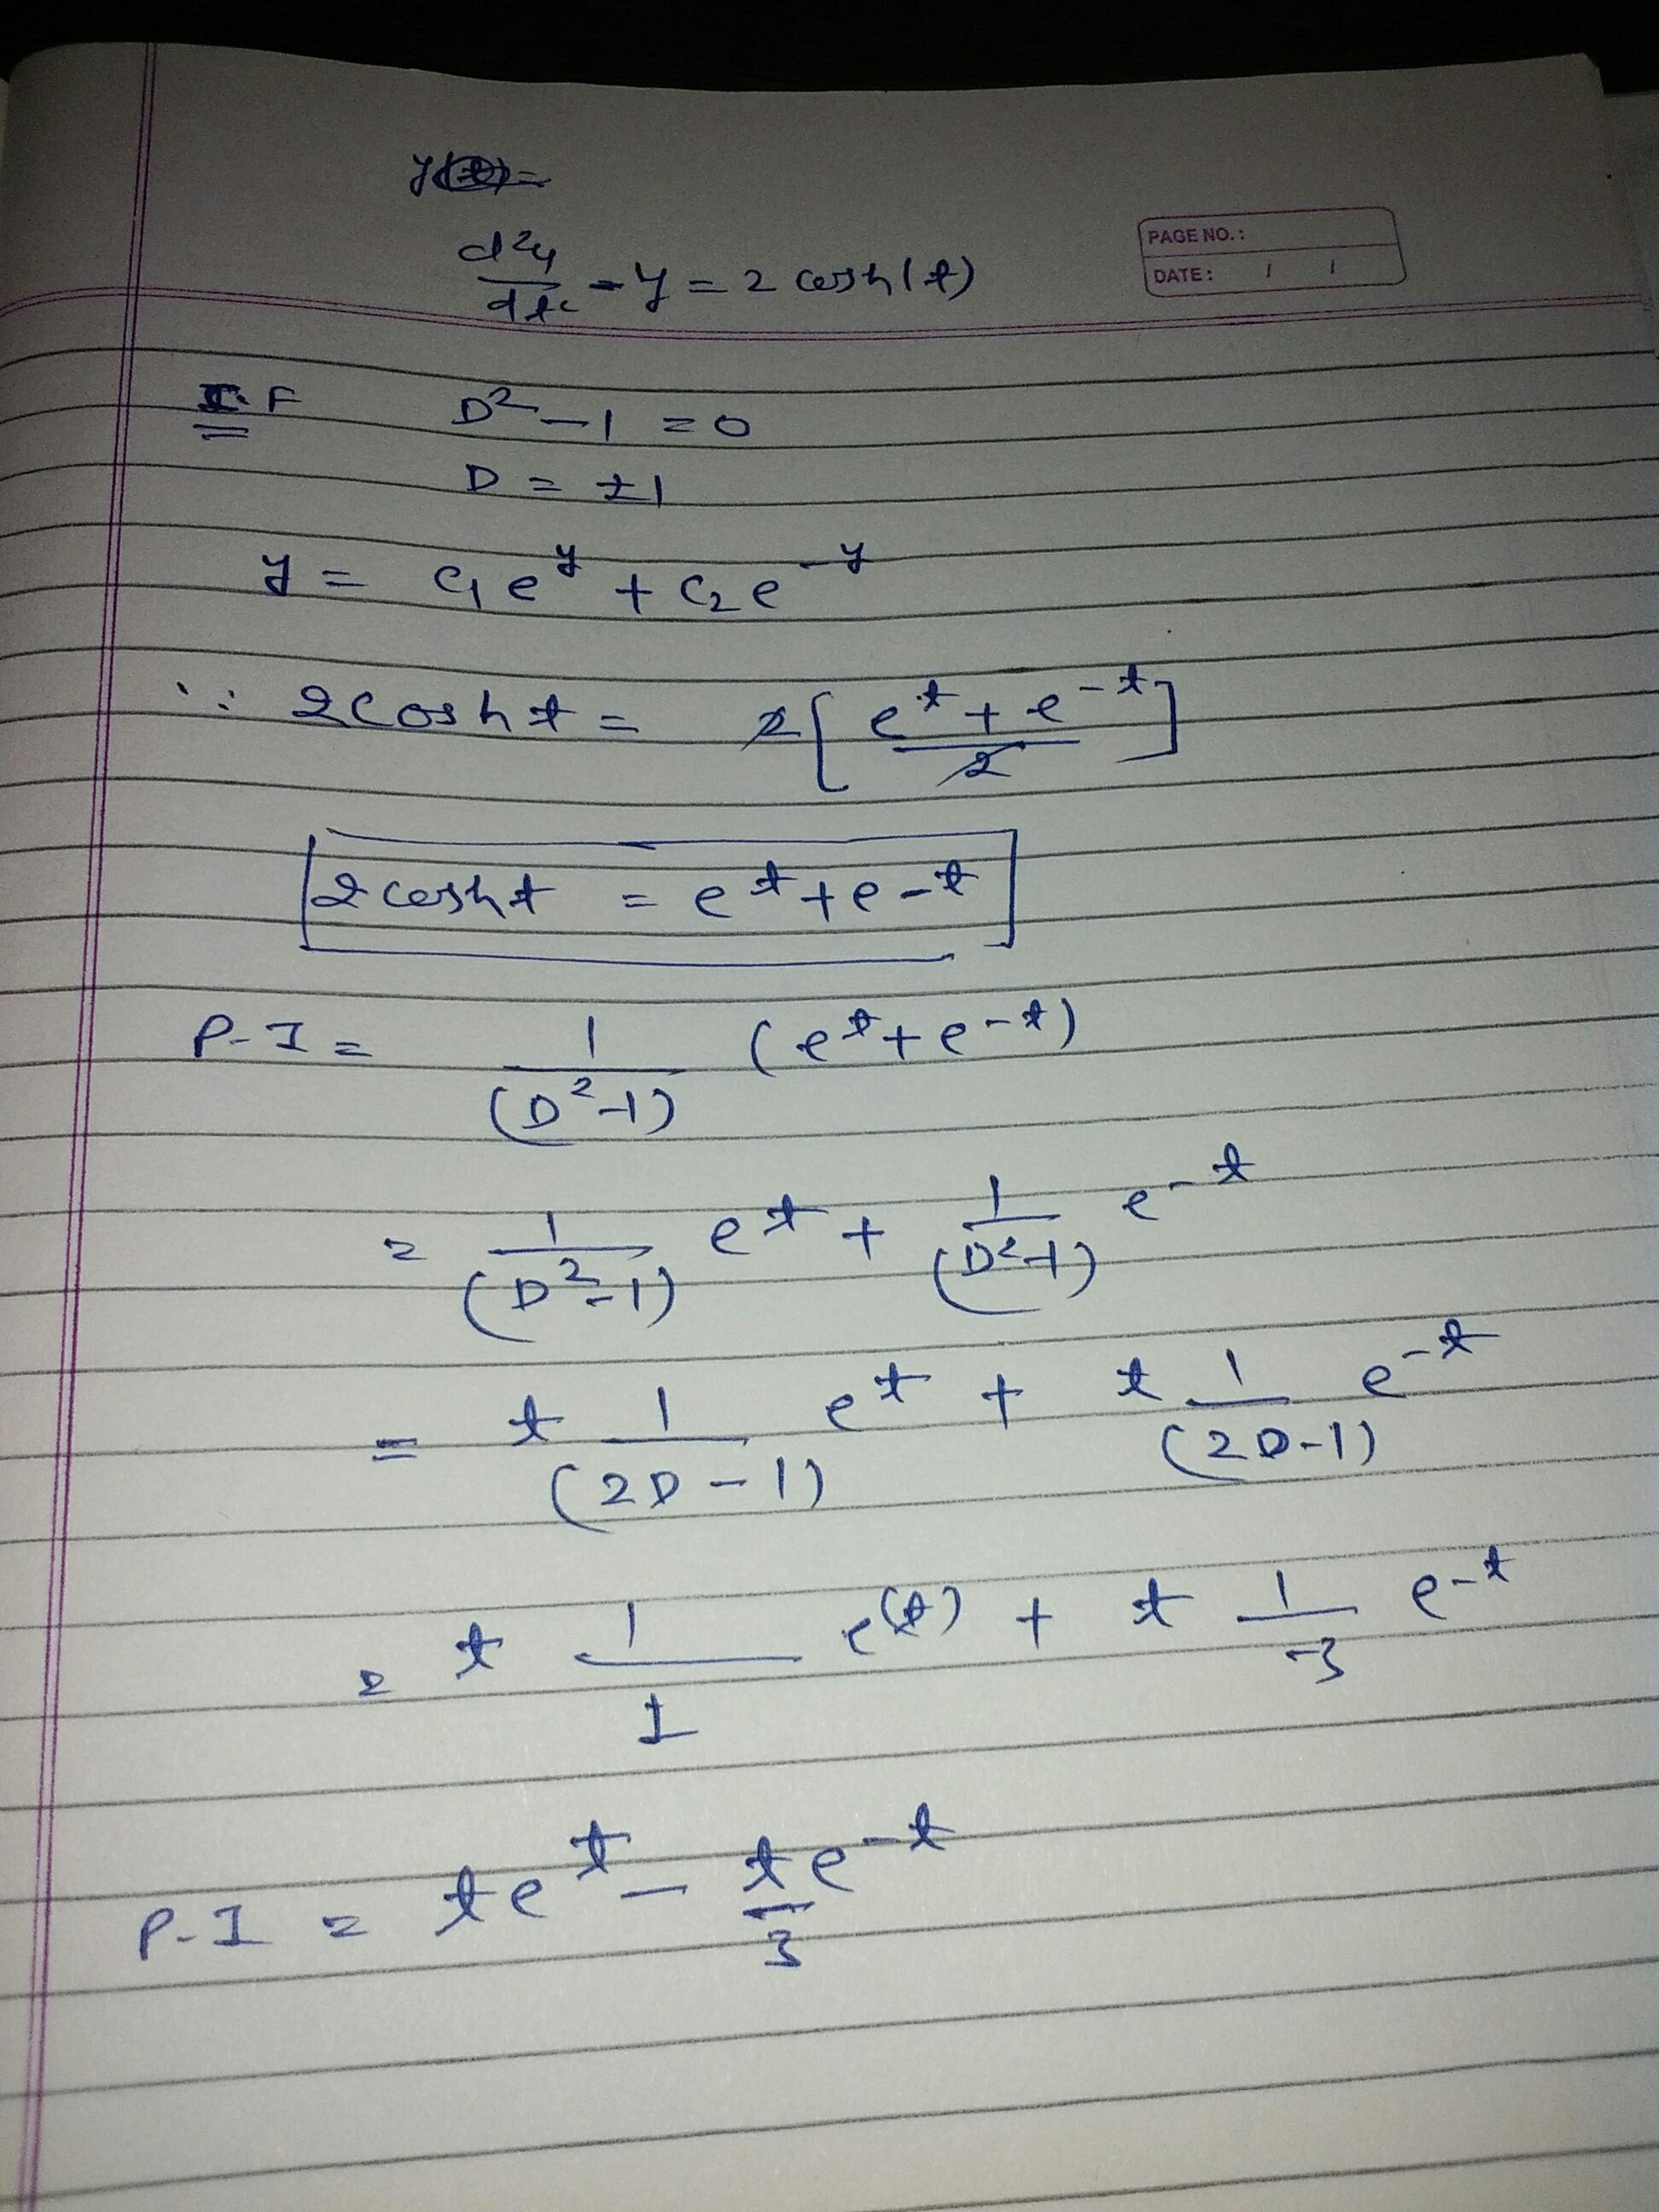 y(t)=
d²y/dt² - y = 2 cosh(t)
PAGE NO.:
DATE: / /
C.F D² - 1 = 0
D = ±1
y = C₁e^y + C₂e^-y
∵ 2cosh t = 2[(e^t + e^-t)/2]
2cosh t = e^t + e^-t
P-I = 1/(D²-1) (e^t + e^-t)
= 1/(D²-1) e^t + 1/(D²-1) e^-t
= t 1/(2D-1) e^t + t 1/(2D-1) e^-t
= t 1/1 e^(t) + t 1/-3 e^-t
P-I = te^t - t/3 e^-t